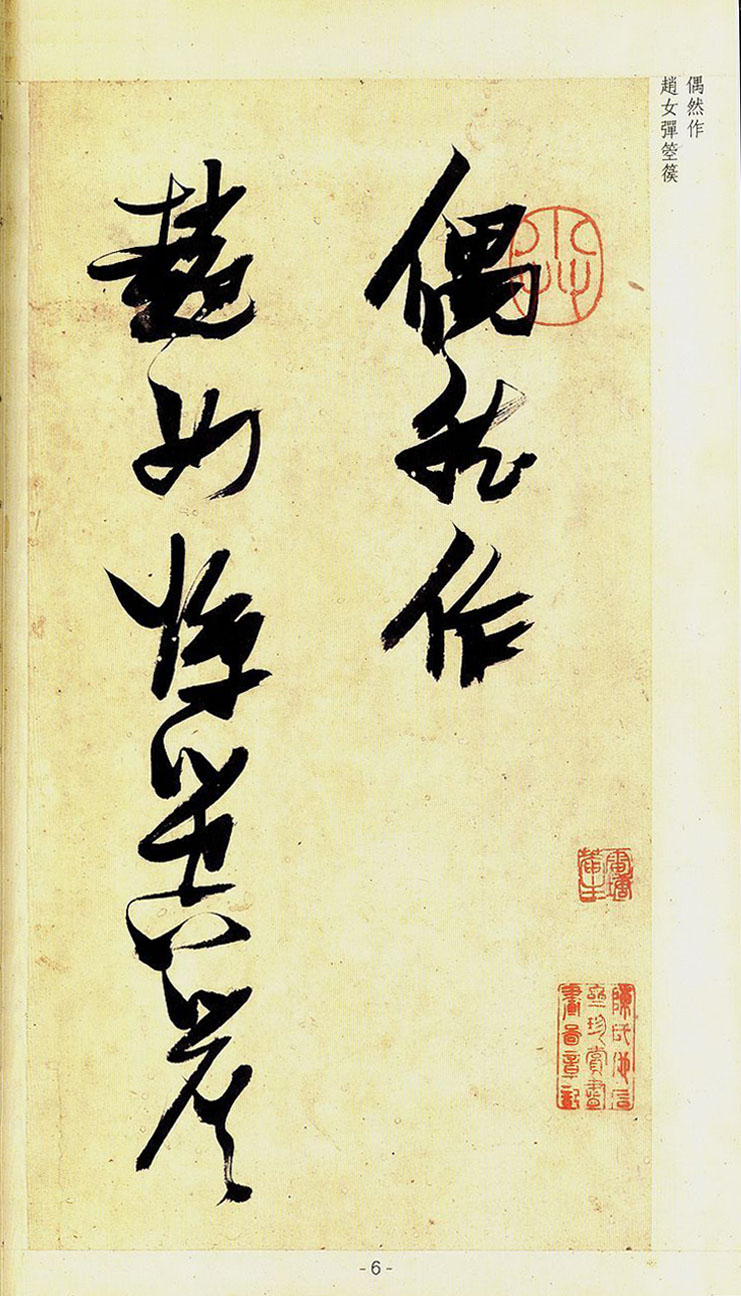 偶然作
趙女彈箜篌
偶然作
趙女彈箜篌
- 6 -